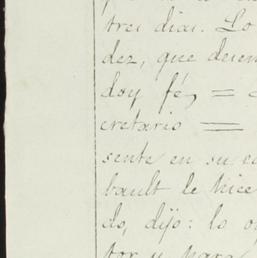 tres dias. Lo
dez, que
doy fé, =
cretario =
sente en su
bault le hice
do, dijo: lo
tor y para